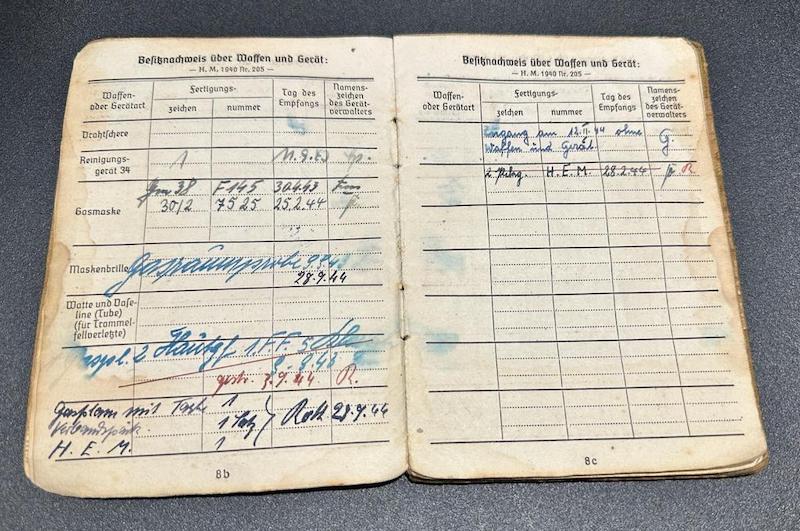 Besitznachweis über Waffen und Gerät:
— H. M. 1940 Nr. 205 —
Waffen-
oder Gerätart
Fertigungs-
zeichen
nummer
Tag des
Empfangs
Namens-
zeichen
des Gerät-
verwalters
Drahtschere
Reinigungs-
gerät 34
1
Gm 38 F 145 30.4.43
Gasmaske
30/2 7525 25.2.44
Maskenbrille
28.9.44
Watte und Vase-
line (Tube)
(für Trommel-
fellverletzte)
2
gestr. 3.9.44 R.
Gasplane mit Tasche 1
1
28.9.44
H. E. M. 1
8b
Besitznachweis über Waffen und Gerät:
— H. M. 1940 Nr. 205 —
Waffen-
oder Gerätart
Fertigungs-
zeichen
nummer
Tag des
Empfangs
Namens-
zeichen
des Gerät-
verwalters
am 12.II.44 ohne
Waffen und Gerät. G.
2 H. E. M. 28.2.44 R.
8c